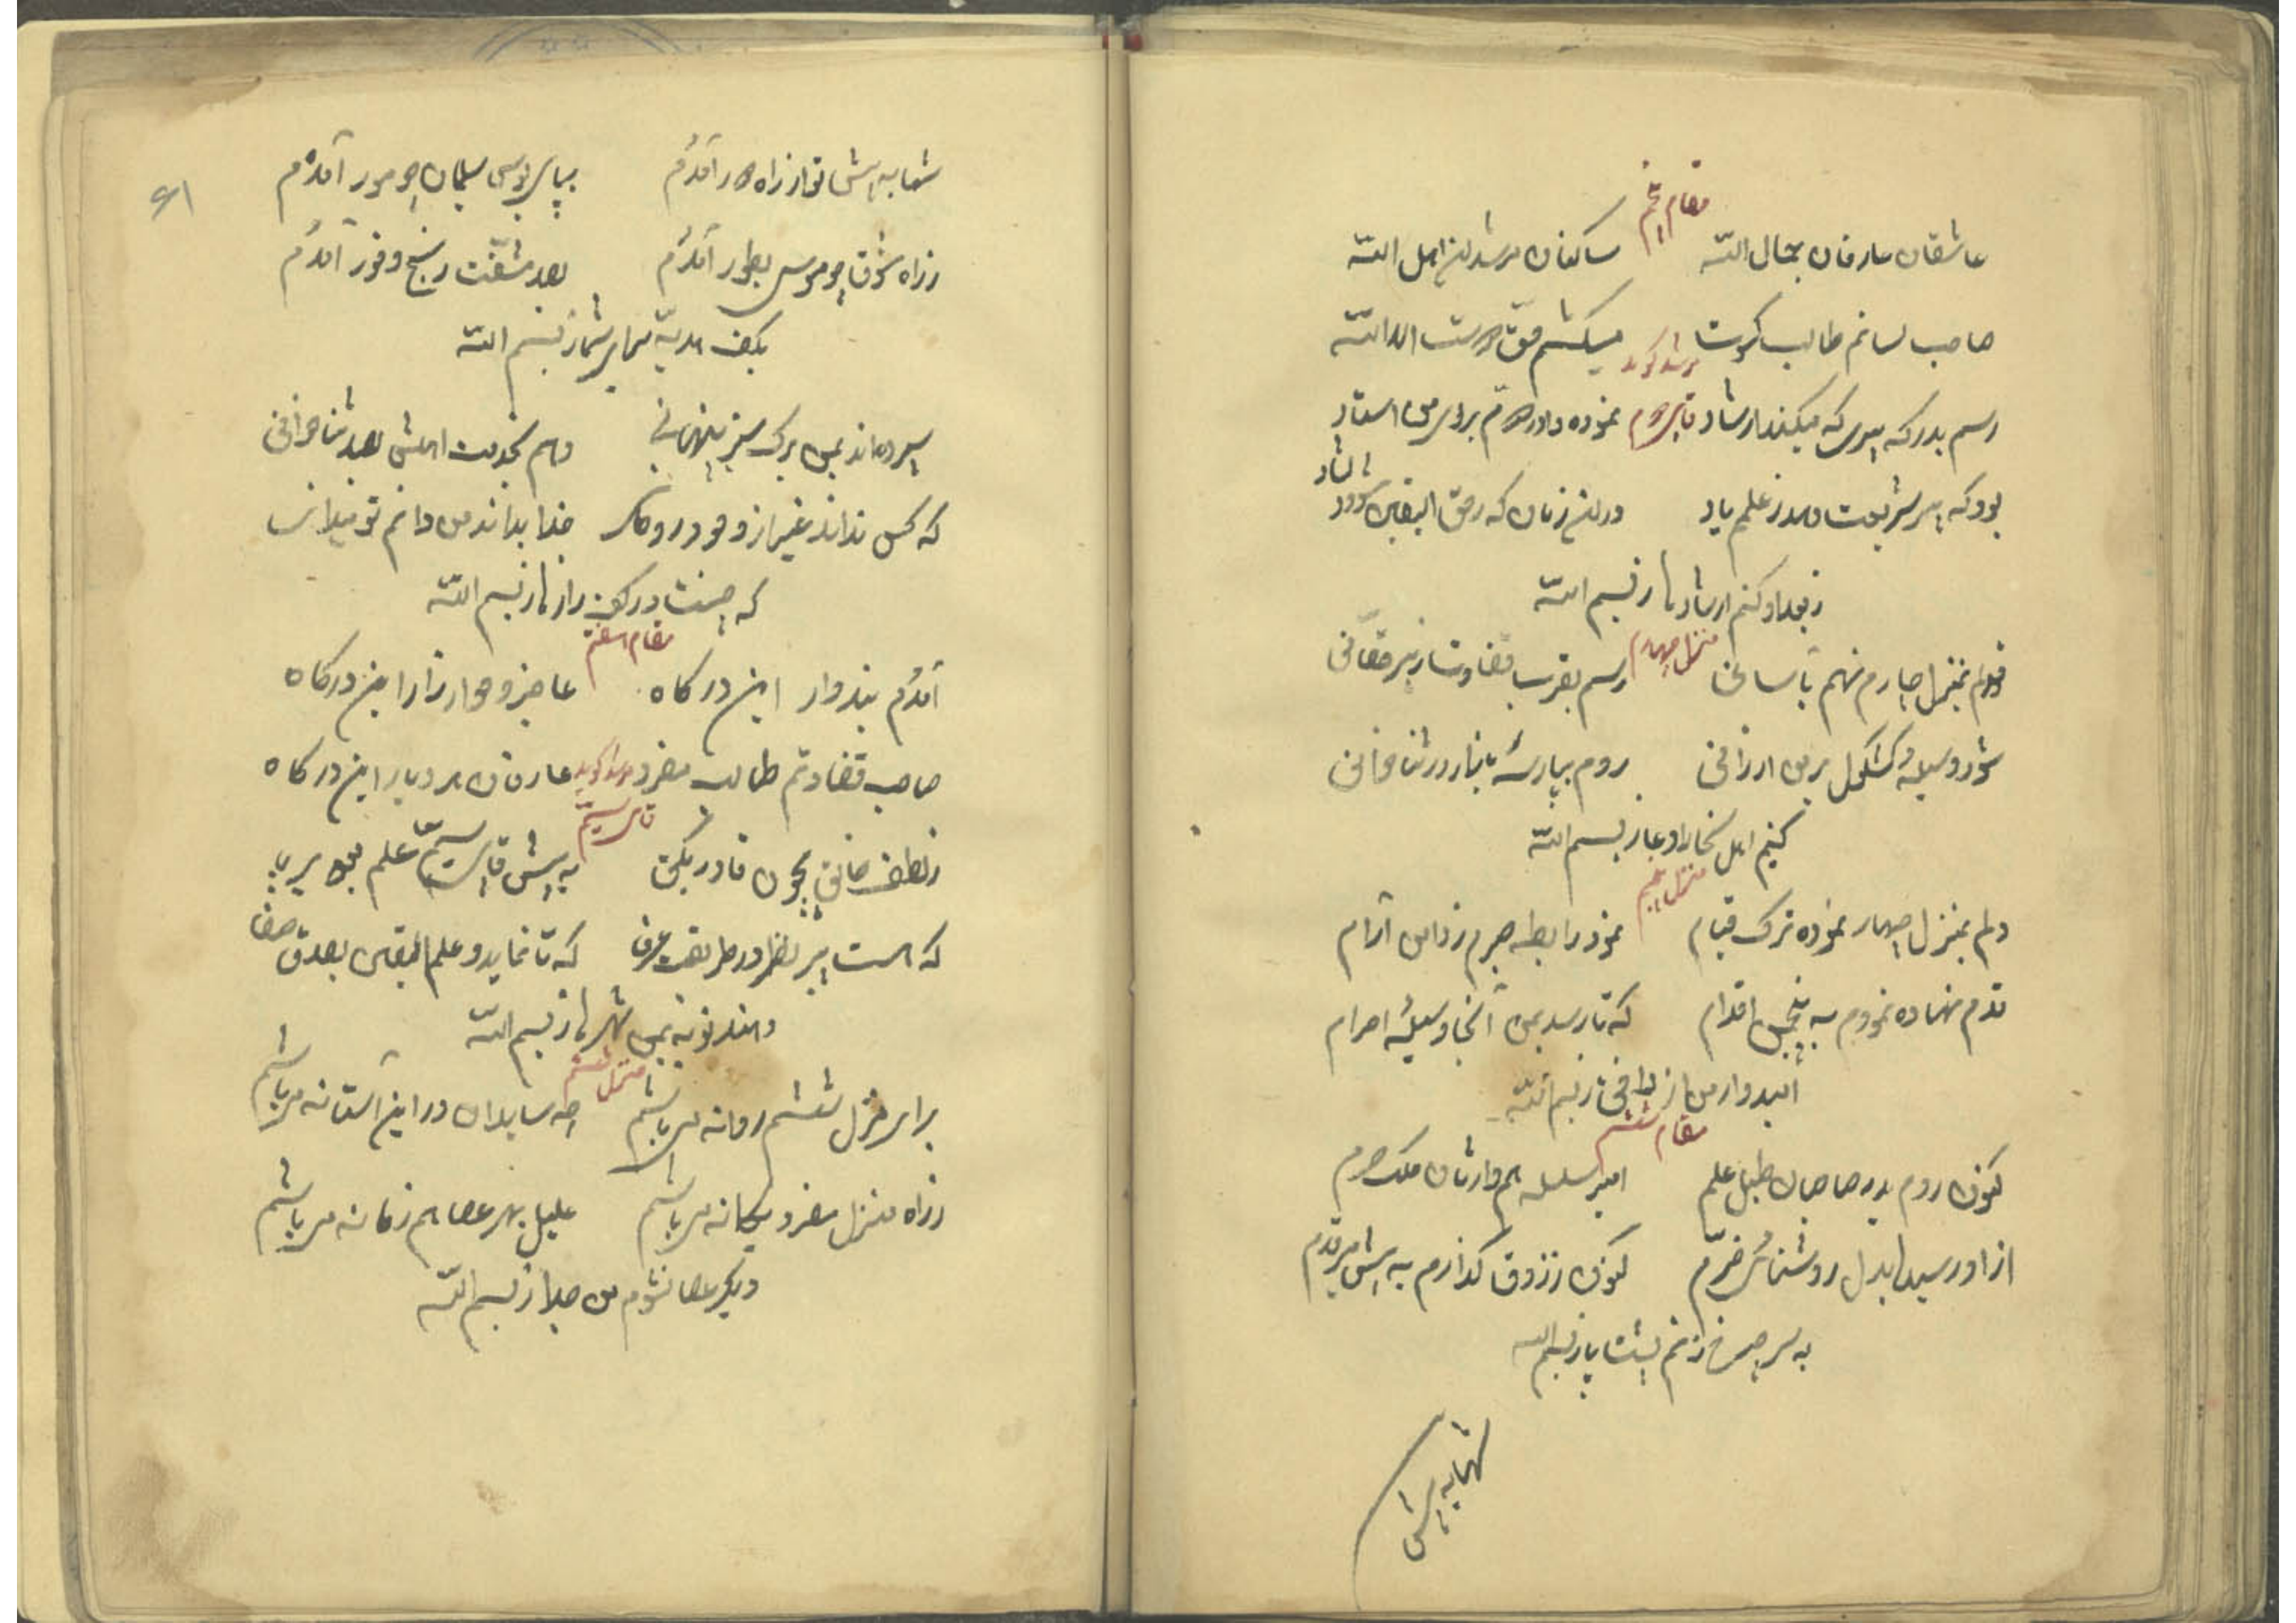 مقام پنجم
عاشقان عارفان جمال الله ساکنان مرشدان اهل الله
صاحب لسانم طالب کسوت میکشم حق دوست الله الله
مرشد گوید
رسم بدرکه پیری که میکند ارشاد نموده داور بروی من استاد
بود که پیر شریعت دهد ز علم یاد درین زمان که ز حق الیقین شود دلشاد
ز بعد او کنم ارشادها ز بسم الله
منزل چهارم
قدم بمنزل چارم نهم بآسانی رسم بقرب قضاوت ز پیر حقانی
شود وسیله کشکول بر من ارزانی روم بپارسه بازار در ثنا خوانی
کنیم اهل سخا را دعا ز بسم الله
منزل پنجم
دلم بمنزل چهار نموده ترک قیام نمود رابطه جرم ز دامن آرام
قدم نهاده نمودم به پنجمین اقدام که تا رسد بمن آنجا وسیله احرام
امیدوار من از وافی ز بسم الله
مقام ششم
کنون روم بدر صاحبان طبل و علم امیر سلسله هم وارثان ملک حرم
از او رسید بدل روشنائی خرم کنون ز ذوق گذارم به پیش میر قدم
به سر چرخ زنم پشت پا ز بسم الله
شها به پیش
۶۱
شها به پیش تو از راه دور آمدم بپای بوسی سلیمان چو مور آمدم
ز راه شوق چو موسی بطور آمدم بصد مشقت و رنج وفور آمدم
بکف هدیه برای شما ز بسم الله
سپرده اند بمن برگ سبز پنهانی دهم بخدمت اهلش بصد ثنا خوانی
که کس نداند غیر از وجود روحانی خدا بداند من دانم تو میدانی
که چیست در کف راز ما ز بسم الله
مقام هفتم
آمدم بنده وار این درگاه عاجز و خوار زار این درگاه
صاحب قضاوتم طالب مفرد عارفان بردبار این درگاه
مرشد گوید
ز لطف خالق بیچون قادر یکتا به پیش علم بر پا
که هست پیر نظر در طریقت عرفا که تا نماید و علم الیقین بصدق صفا
دهند توبه بمن شهرها ز بسم الله
منزل ششم
برای منزل ششم روانه میباشم چه سایلان در این آستانه میباشم
ز راه منزل مفرد یگانه میباشم علیل بهر عصا هم زمانه میباشم
دیگر عصا نشوم من جدا ز بسم الله